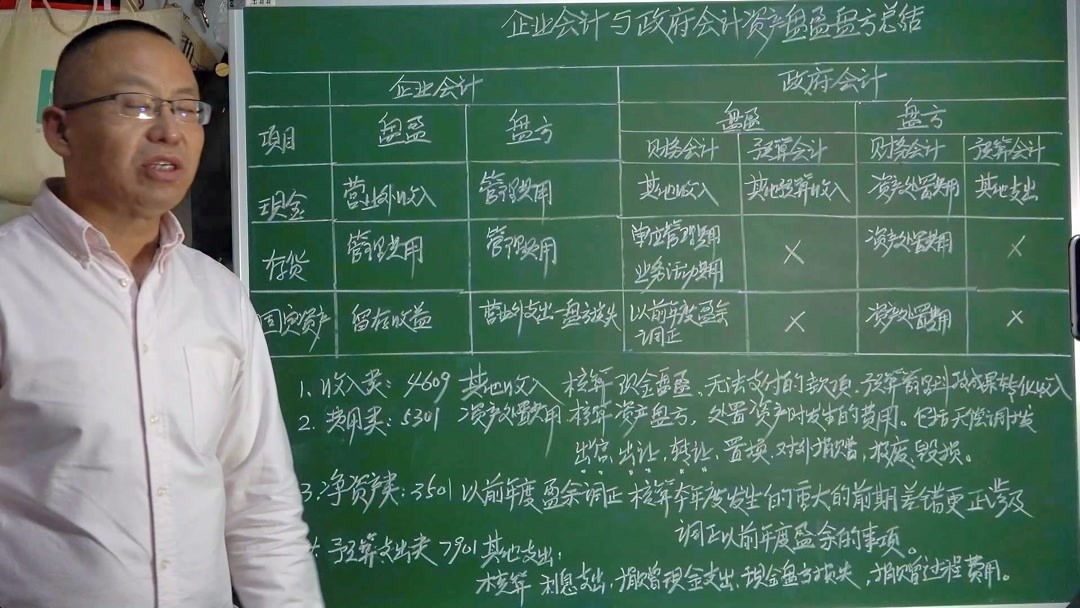 企业会计与政府会计资产盘盈盘亏总结
企业会计 政府会计
项目 盘盈 盘亏 盘盈 盘亏
财务会计 预算会计 财务会计 预算会计
现金 营业外收入 管理费用 其他收入 其他预算收入 资产处置费用 其他支出
存货 管理费用 管理费用 单位管理费用 业务活动费用 × 资产处置费用 ×
固定资产 留存收益 营业外支出-盘亏损失 以前年度盈余调正 × 资产处置费用 ×
1. 收入类: 4609 其他收入 核算 现金盘盈, 无法支付的款项,
2. 费用类: 5301 资产处置费用 核算资产盘亏, 处置资产时发生的费用。包括无偿调拨
出售, 出让, 转让, 置换, 对外捐赠, 报废, 毁损。
3. 净资产类: 3501 以前年度盈余调正 核算本年度发生的重大的前期差错更正涉及
调正以前年度盈余的事项。
预算支出类 7901 其他支出:
核算 利息支出, 捐赠现金支出, 现金盘亏损失, 捐赠过程费用。